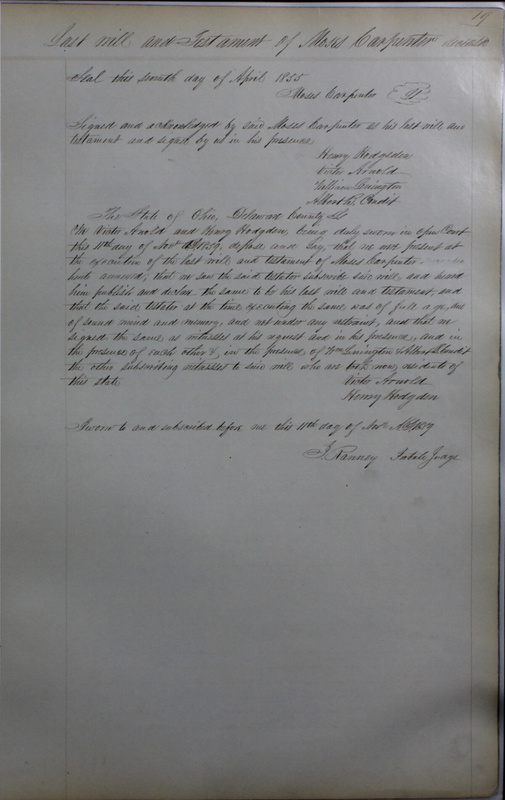 19
Last will and Testament of Moses Carpenter deceased
Seal this seventh day of April 1855
Moses Carpenter
Signed and acknowledged by said Moses Carpenter as his last will and
testament and signed by us in his presence
Henry Hodgden
Arnold
William
Albert Condit
The State of Ohio, Delaware County
We Arnold and Henry Hodgden, being duly sworn in open Court
this 11th day of Novr AD 1859, depose and say, that we were present at
the execution of the last will and testament of Moses Carpenter
hereto annexed; that we saw the said testator subscribe said will, and heard
him publish and declare the same to be his last will and testament, and
that the said testator at the time executing the same, was of full age, and
of sound mind and memory, and not under any restraint, and that we
signed the same, as witnesses at his request and in his presence, and in
the presence of each other &, in the presence, of Wm & Albert Condit
the other subscribing witnesses to said will who are both non residents of
this state
Arnold
Henry Hodgden
Sworn to and subscribed before me this 11th day of Novr AD 1859
T. Ranney Probate Judge